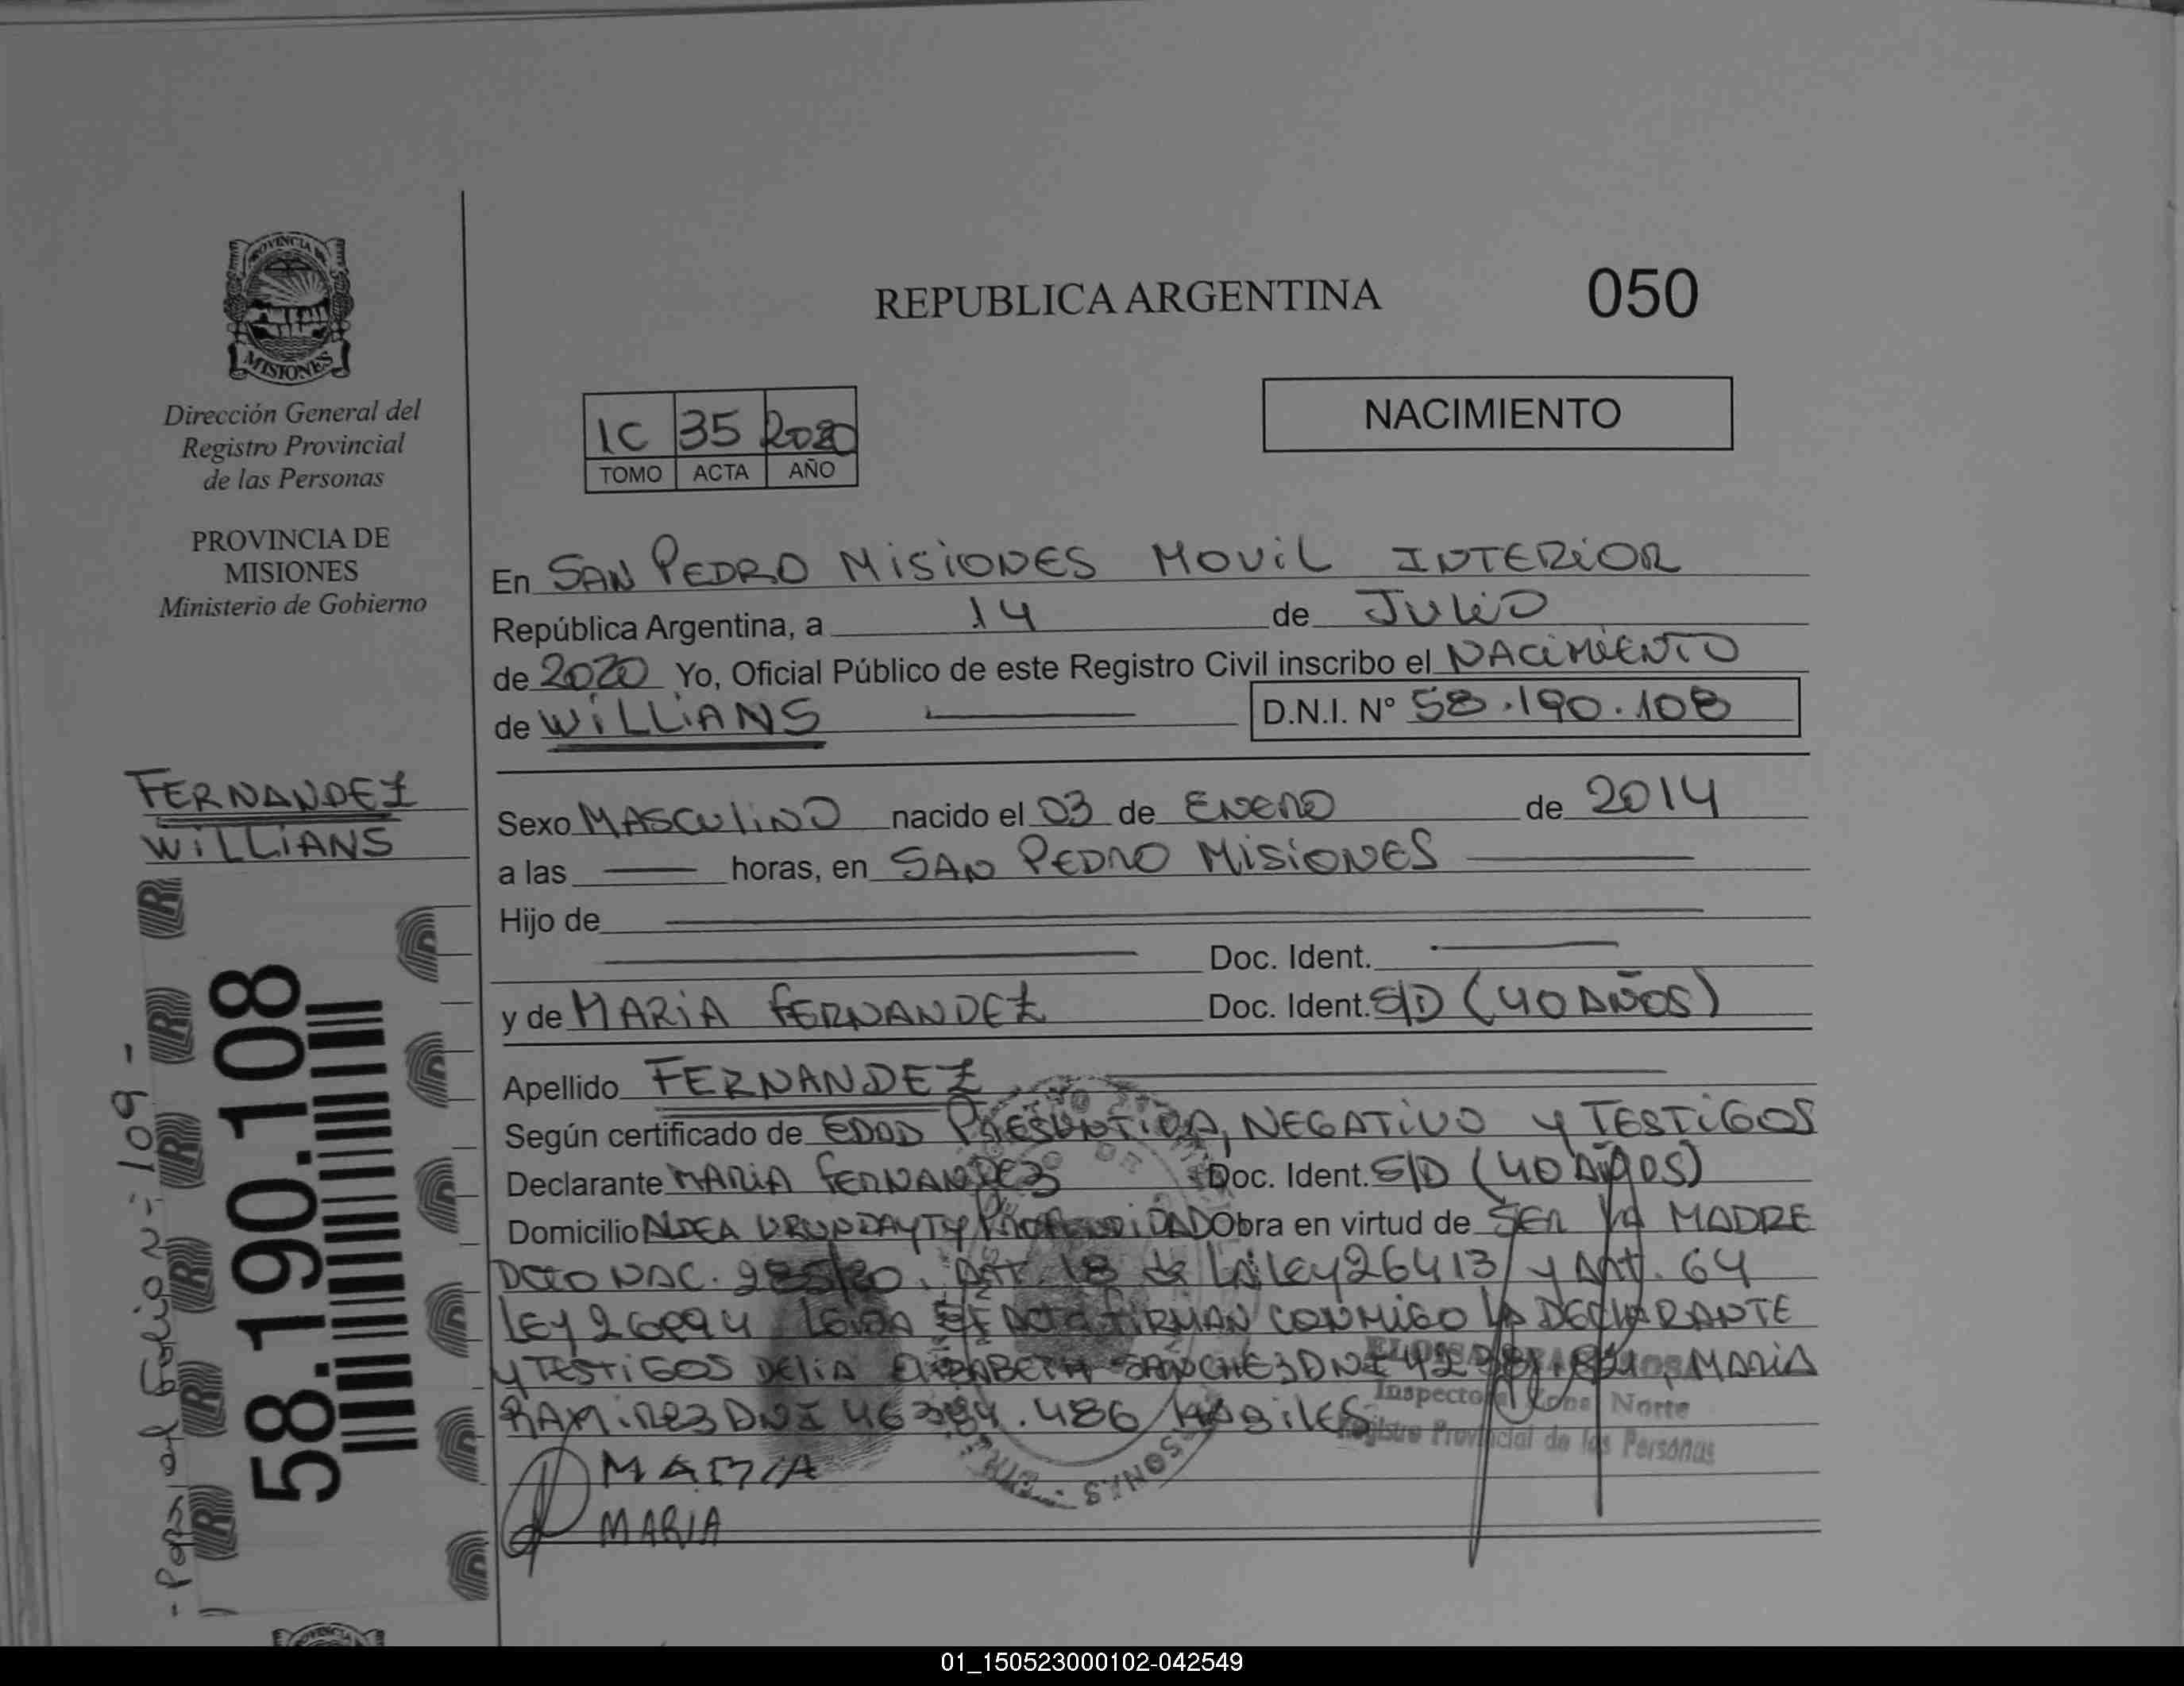 REPUBLICA ARGENTINA
050
PROVINCIA DE
MISIONES
Dirección General del
Registro Provincial
de las Personas
PROVINCIA DE
MISIONES
Ministerio de Gobierno
1C 35 2020
TOMO ACTA AÑO
NACIMIENTO
En SAN PEDRO MISIONES MOVIL INTERIOR
República Argentina, a 14 de JULIO
de 2020 Yo, Oficial Público de este Registro Civil inscribo el NACIMIENTO
de WILLIANS D.N.I. N° 58.190.108
FERNANDEZ
WILLIANS
Sexo MASCULINO nacido el 03 de ENERO de 2014
a las horas, en SAN PEDRO MISIONES
Hijo de
Doc. Ident.
y de MARIA FERNANDEZ Doc. Ident. S/D (40 AÑOS)
Apellido FERNANDEZ
Según certificado de EDAD PRESUNTIVA, NEGATIVO Y TESTIGOS
Declarante MARIA FERNANDEZ Doc. Ident. S/D (40 AÑOS)
Domicilio ALDEA Obra en virtud de SER LA MADRE
DCTO NAC. ART. 18 de LA LEY 26413 y ART. 64
LEY LEIDA EL ACTA FIRMAN CONMIGO LA DECLARANTE
Y TESTIGOS DELIA ELIZABETH SANCHEZ DNI MARIA
RAMIREZ DNI 46 .486 HABILES
Inspector Zona Norte
Registro Provincial de las Personas
MARIA
MARIA
58.190.108
- Pasa al folio N° 109 -
01_150523000102-042549